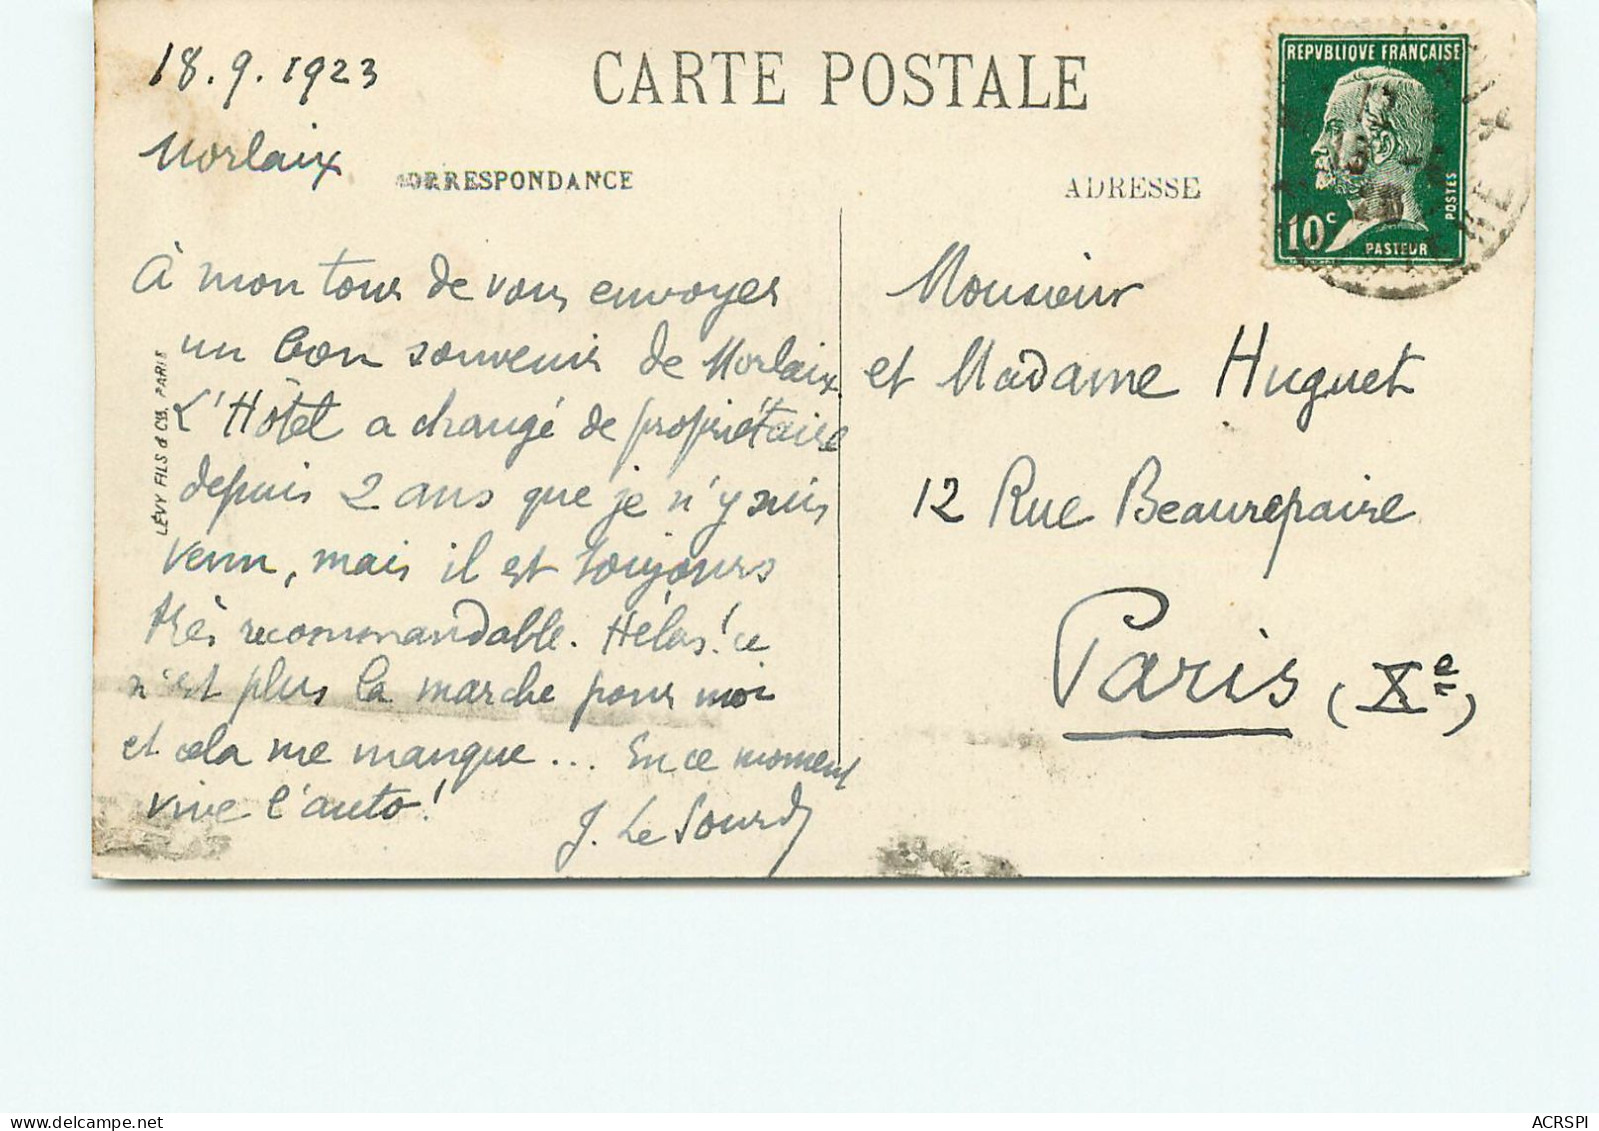 18.9.1923
CARTE POSTALE
Morlaix
CORRESPONDANCE
ADRESSE
REPVBLIQVE FRANÇAISE
10c
POSTES
PASTEUR
À mon tour de vous envoyer
un bon souvenir de Morlaix
L'Hôtel a changé de propriétaire
depuis 2 ans que je n'y suis
venu, mais il est toujours
très recommandable. Hélas! ce
n'est plus la marche pour moi
et cela me manque... En ce moment
vive l'auto!
J. Le Sourd
LÉVY FILS & Cie, PARIS
Monsieur
et Madame Huguet
12 Rue Beaurepaire
Paris (Xe)
ACRSPI